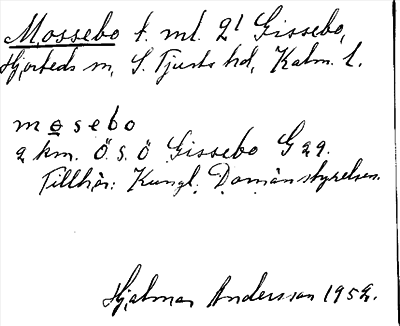 Mossebo t. ml. 21 Gissebo,
Hjorteds sn, S. Tjusts hd, Kalm. l.
mosebo
2 km. Ö.S.Ö Gissebo G 22.
Tillhör: Kungl. Domänstyrelsen.
Hjalmar Andersson 1952.